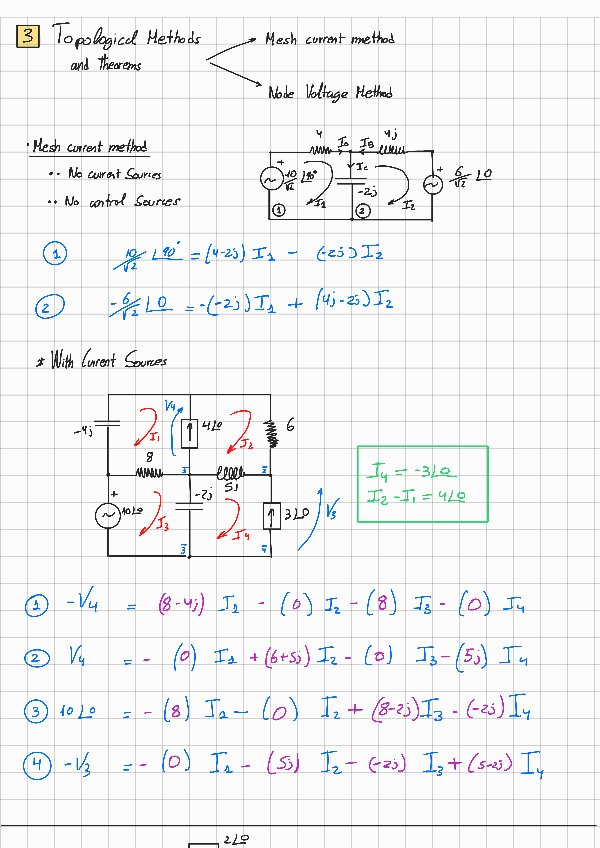 3 Topological Methods
and theorems
Mesh current method
Node Voltage Method
· Mesh current method
·· No current Sources
·· No control Sources
4 Ia Ib 4j
+ 10/√2 ∠90° Ic -2j + 6/√2 ∠0
1 I1 2 I2
① 10/√2 ∠90° = (4-2j) I1 - (-2j) I2
② -6/√2 ∠0 = -(-2j) I1 + (4j-2j) I2
* With Current Sources
-4j I1 V4 4∠0 I2 6
8 1 5j 2
+ 10∠0 I3 -2j I4 3∠0 V3
3 4
I4 = -3∠0
I2 - I1 = 4∠0
① -V4 = (8-4j) I1 - (0) I2 - (8) I3 - (0) I4
② V4 = - (0) I1 + (6+5j) I2 - (0) I3 - (5j) I4
③ 10∠0 = - (8) I1 - (0) I2 + (8-2j) I3 - (-2j) I4
④ -V3 = - (0) I1 - (5j) I2 - (-2j) I3 + (5-2j) I4
2∠0